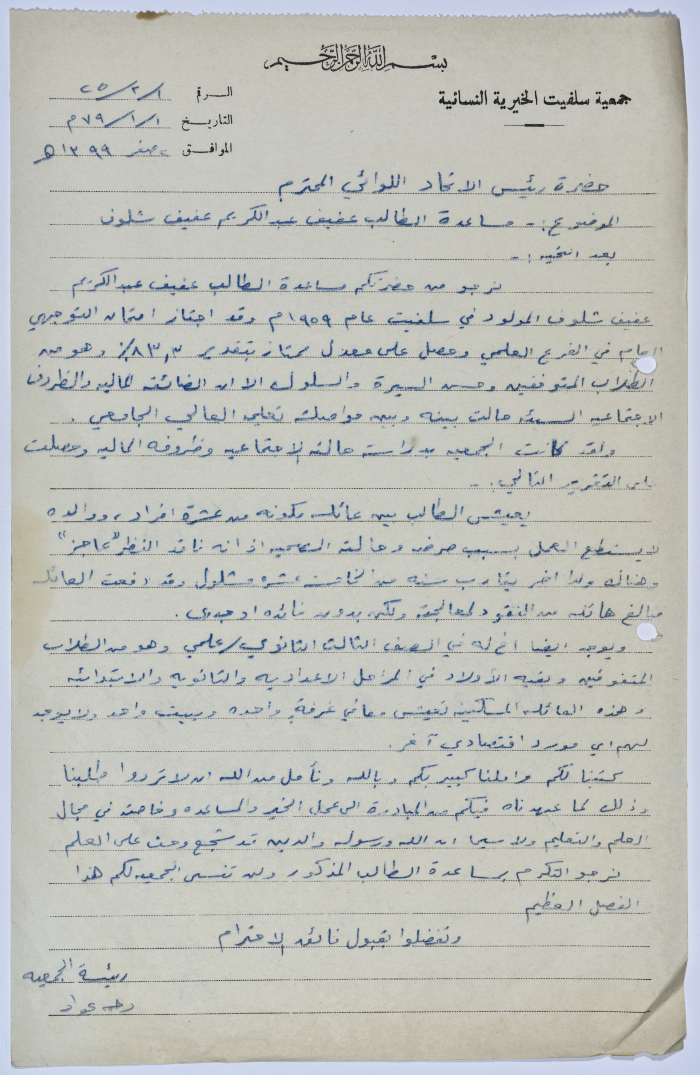 بسم الله الرحمن الرحيم
جمعية سلفيت الخيرية النسائية
الرقم ٢٥/٢/١
التاريخ ٧٩/١/١م
الموافق صفر ١٣٩٩ه
حضرة رئيس الاتحاد اللوائي المحترم
الموضوع :- مساعدة الطالب عفيف عبدالكريم عفيف شلوف
بعد التحيه :-
نرجو من حضرتكم مساعدة الطالب عفيف عبدالكريم
عفيف شلوف المولود في سلفيت عام ١٩٥٩م وقد اجتاز امتحان التوجيهي
العام في الفرع العلمي وحصل على معدل ممتاز بتقدير ٨٣,٣٪ وهو من
الطلاب المتوفقين وحسن السيرة والسلوك الا ان الضائقه الماليه والظروف
الاجتماعيه السيئه حالت بينه وبين مواصلته تعليمه العالي الجامعي .
ولقد قامت الجمعيه بدراسة حالته الاجتماعيه وظروفه الماليه وحصلت
على التقرير التالي :-
يعيش الطالب بين عائله مكونه من عشرة افراد ، ووالده
لا يستطع العمل بسبب مرضه وحالته الصحيه اذ انه فاقد النظر "عاجز"
وهناك ولد اخر يقارب سنه من الخامسه عشره مشلول وقد دفعت العائله
مبالغ هائله من النقود لمعالجته ولكن بدون فائده او جدوى .
ويوجد ايضا اخ له في الصف الثالث الثانوي/علمي وهو من الطلاب
المتفوقين وبقيه الأولاد في المراحل الاعداديه والثانويه والابتدائيه
وهذه العائله المسكينه تعيش في غرفة واحده وبيت واحد ولا يوجد
لهم اي مورد اقتصادي آخر .
كتبنا لكم واملنا كبير بكم وبالله ونأمل من الله ان لا تردوا طلبنا
وذلك لما عهدناه فيكم من المبادرة الى عمل الخير والمساعده وخاصة في مجال
العلم والتعليم ولا سيما ان الله ورسوله والدين قد شجع وحث على العلم
نرجو التكرم بمساعدة الطالب المذكور ولن تنسى الجمعيه لكم هذا
الفضل العظيم
وتفضلوا بقبول فائق الاحترام
رئيسة الجمعيه